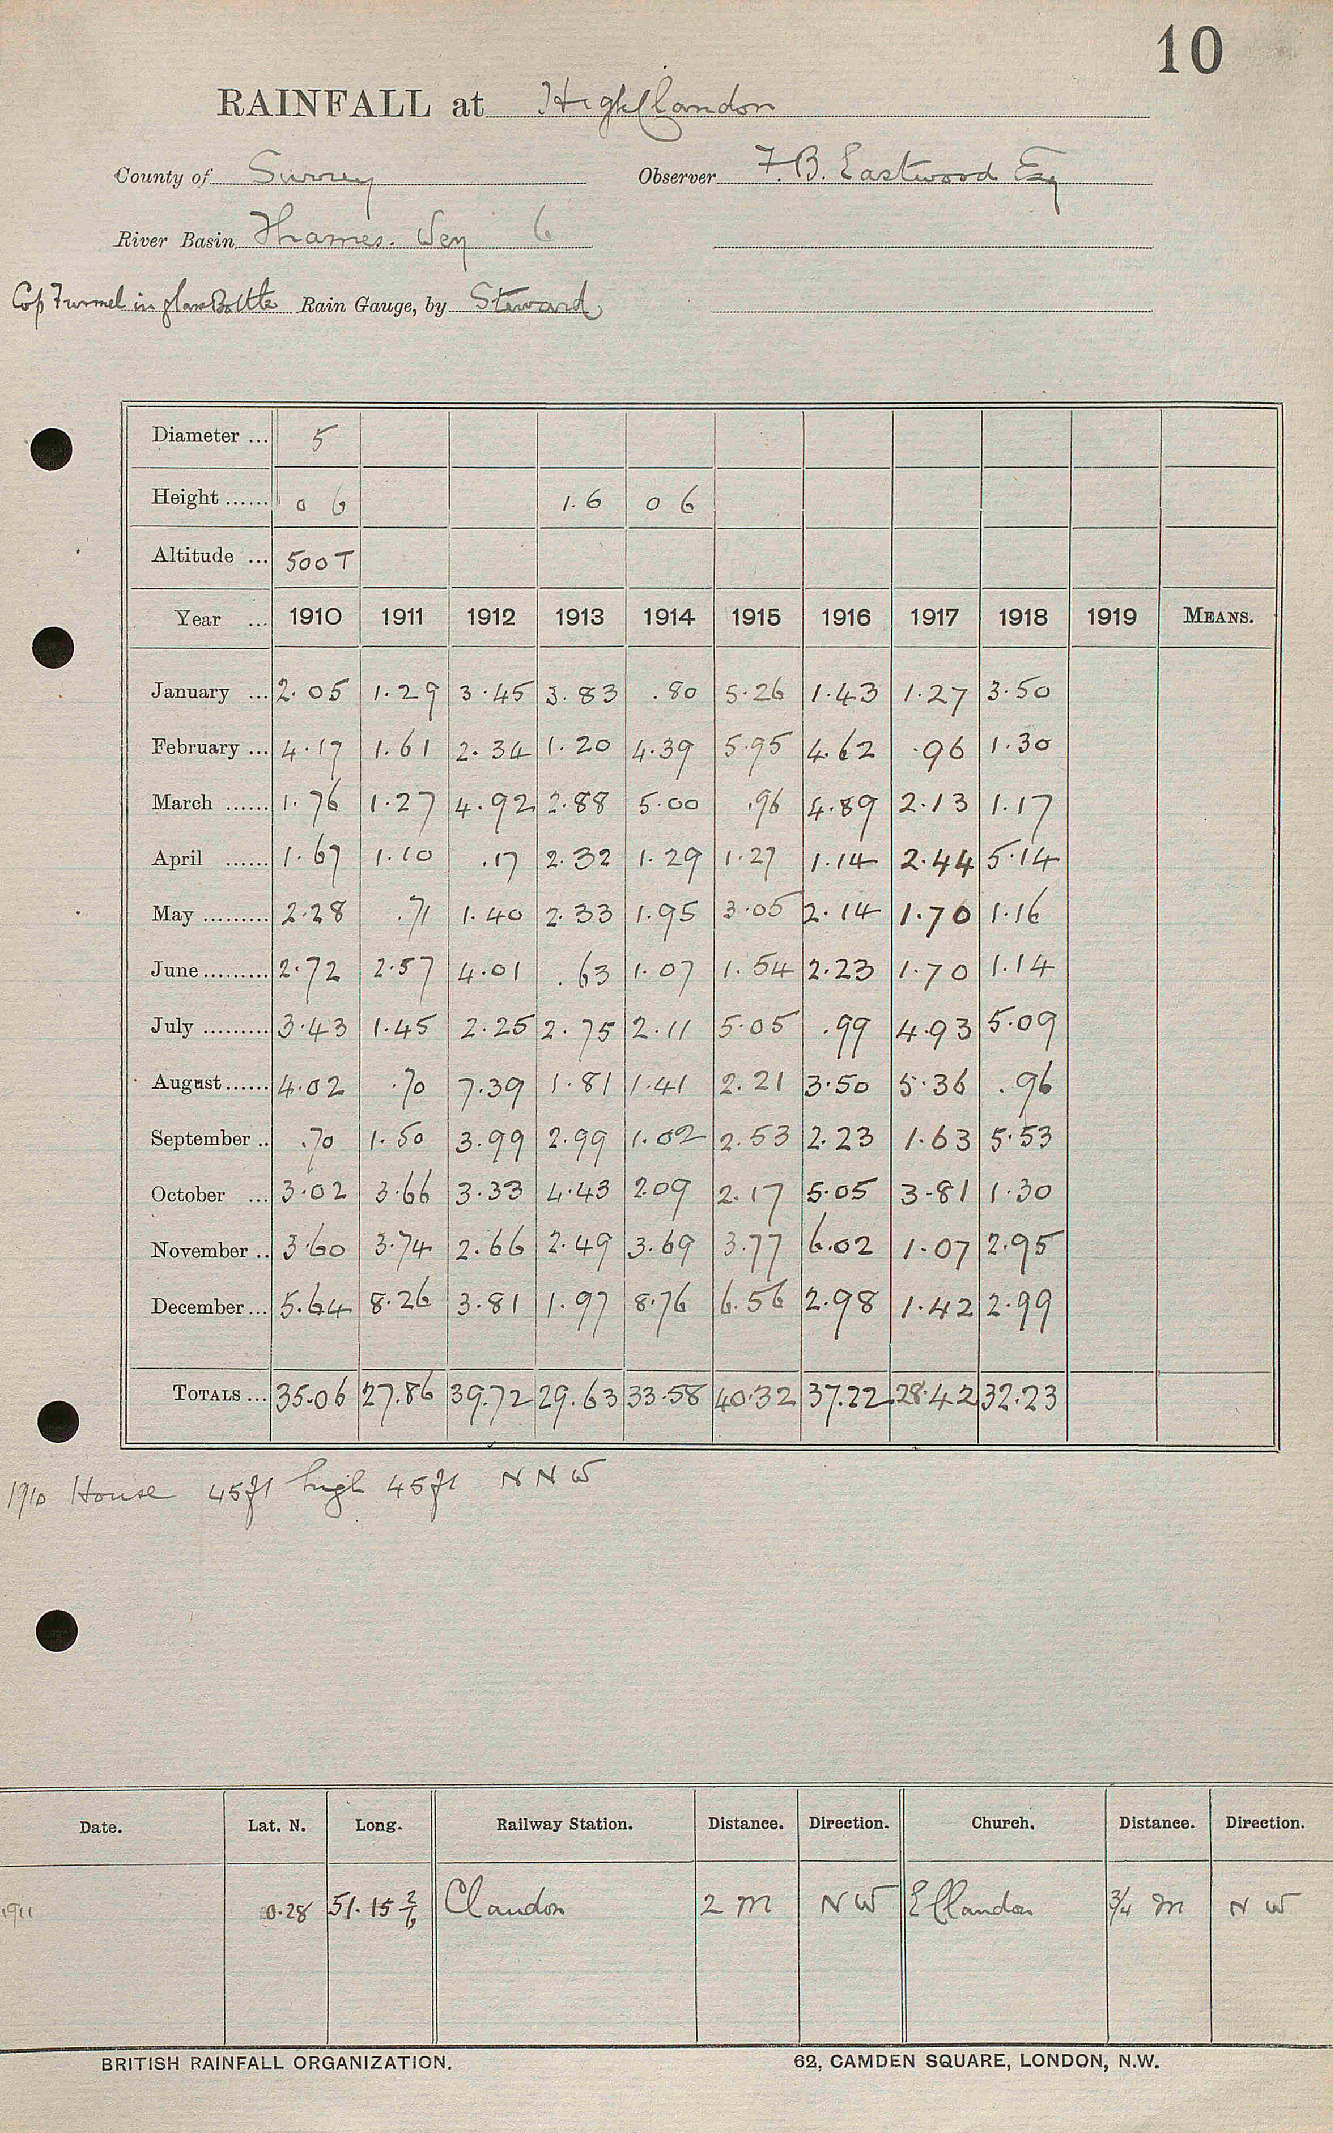 10
RAINFALL at High Clandon
County of Surrey Observer F.B. Eastwood Esq
River Basin Thames. Wey 6
Cop Funnel in glass Bottle Rain Gauge, by Steward
Diameter ... 5
Height ...... 0 6 1.6 0 6
Altitude ... 500 T
Year ... 1910 1911 1912 1913 1914 1915 1916 1917 1918 1919 MEANS.
January ... 2.05 1.29 3.45 3.83 .80 5.26 1.43 1.27 3.50
February ... 4.17 1.61 2.34 1.20 4.39 5.95 4.62 .96 1.30
March ...... 1.76 1.27 4.92 2.88 5.00 .96 4.89 2.13 1.17
April ...... 1.67 1.10 .17 2.32 1.29 1.27 1.14 2.44 5.14
May ......... 2.28 .71 1.40 2.33 1.95 3.05 2.14 1.70 1.16
June ......... 2.72 2.57 4.01 .63 1.07 1.54 2.23 1.70 1.14
July ......... 3.43 1.45 2.25 2.75 2.11 5.05 .99 4.93 5.09
August ...... 4.02 .70 7.39 1.81 1.41 2.21 3.50 5.36 .96
September .. .70 1.50 3.99 2.99 1.02 2.53 2.23 1.63 5.53
October ... 3.02 3.66 3.33 4.43 2.09 2.17 5.05 3.81 1.30
November .. 3.60 3.74 2.66 2.49 3.69 3.77 6.02 1.07 2.95
December ... 5.64 8.26 3.81 1.97 8.76 6.56 2.98 1.42 2.99
TOTALS ... 35.06 27.86 39.72 29.63 33.58 40.32 37.22 28.42 32.23
1910 House 45ft high 45ft N N W
Date. Lat. N. Long. Railway Station. Distance. Direction. Church. Distance. Direction.
1911 0.28 51.15 Clandon 2 m N W E Clandon 3/4 m N W
BRITISH RAINFALL ORGANIZATION. 62, CAMDEN SQUARE, LONDON, N.W.